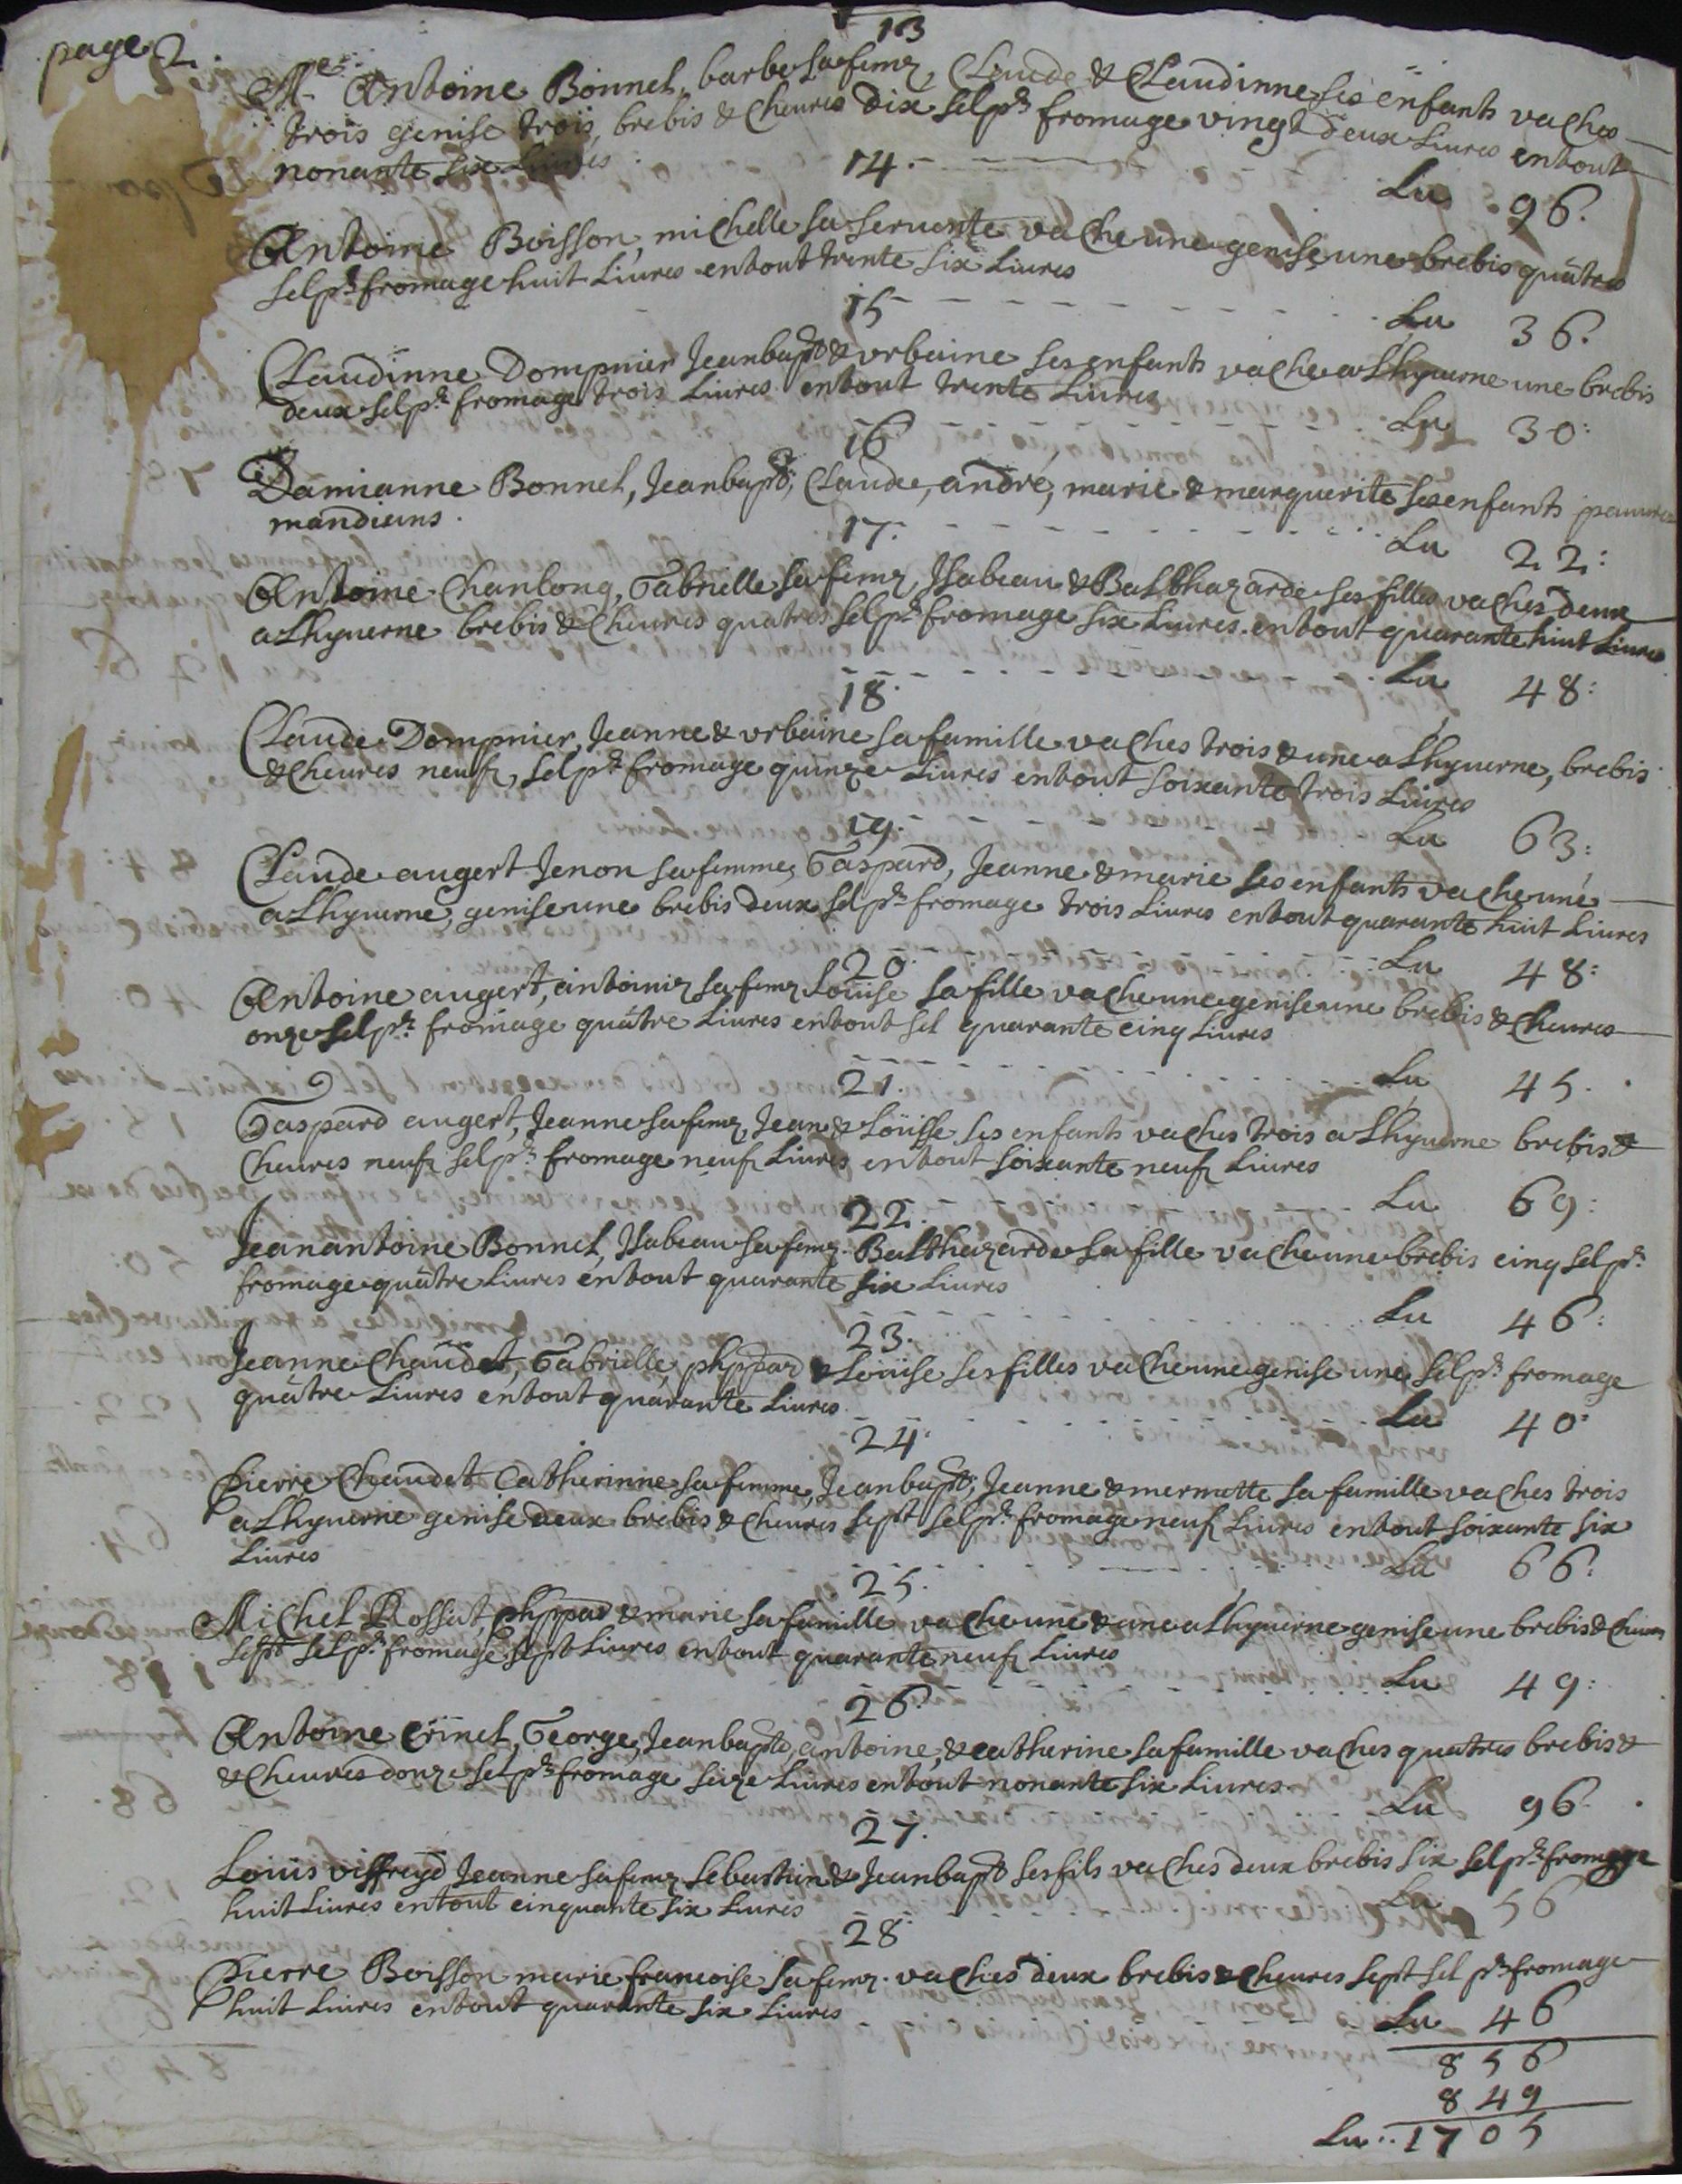 page 2.
13
Me Antoine Bonnel, barbe sa feme, Claude & Claudinne ses enfants vaches
trois genise trois, brebis & cheures dix selpr fromage vingt deux Liures entout
nonante six Liures
Lu 96.
14.
Antoine Boisson, michelle sa seruante vache une genise une brebis quatres
selpr fromage huit Liures entout trente six Liures
Lu 36.
15
Claudinne Dompnier Jeanbapte & vrbaine ses enfants vache a Lhyuerne une brebis
deux selpr fromage trois Liures entout trente Liures
Lu 30:
16
Damianne Bonnel, Jeanbapte, Claude, andré, marie & marguerite ses enfants pauures
mandians.
Lu 22:
17.
Antoine Chanlong, Gabrielle sa feme, Isabeau & Balthazarde ses filles vaches deux
a Lhyuerne brebis & Cheures quatres selpr fromage six Liures entout quarante huit Liures
Lu 48:
18.
Claude Dompnier, Jeanne & vrbaine sa famille vaches trois & une a Lhyuerne, brebis
& cheures neuf, selpr fromage quinze Liures entout soixante trois Liures
Lu 63:
19.
Claude augert Jenon sa femme, Gaspard, Jeanne & marie ses enfants vache une
a Lhyuerne, genise une brebis deux selpr fromage trois Liures entout quarante huit Liures
Lu 48:
20.
Antoine augert, antoinie sa feme Loüise sa fille vache une genise une brebis & Cheures
onze selpr fromage quatre Liures entout sel quarante cinq Liures
Lu 45.
21.
Gaspard augert, Jeanne sa feme, Jean & Loüisse ses enfants vaches trois a Lhyuerne brebis &
Cheures neuf selpr fromage neuf Liures entout soixante neuf Liures
Lu 69:
22.
Jeanantoine Bonnel, Isabeau sa feme. Balthazarde sa fille vache une brebis cinq selpr
fromage quatre Liures entout quarante six Liures
Lu 46:
23.
Jeanne Chaudet, Gabrielle, phppad & Loüise ses filles vache une genise une selpr fromage
quatre Liures entout quarante Liures
Lu 40:
24.
Pierre Chaudet Catherinne sa femme, Jeanbapte, Jeanne & mermette sa famille vaches trois
a Lhyuerne genise deux brebis & cheures sept selpr fromage neuf Liures entout soixante six
Liures
Lu 66:
25.
Michel Rossat, phppad & marie sa famille vache une & une a Lhyuerne genise une brebis & cheures
sept selpr fromage sept Liures entout quarante neuf Liures
Lu 49:
26.
Antoine Crinel, George, Jeanbapte, antoine, & catherine sa famille vaches quatres brebis &
& Cheures douze selpr fromage seize Liures entout nonante six Liures.
Lu 96.
27.
Loüis viffreyd Jeanne sa feme Sebastien & Jeanbapte ses fils vaches deux brebis six selpr fromage
huit Liures entout cinquante six Liures
Lu 56
28
Pierre Boisson marie francoise sa feme. vaches deux brebis & cheures sept sel pr fromage
huit Liures entout quarante six Liures
Lu 46
856
849
Lu.. 1705